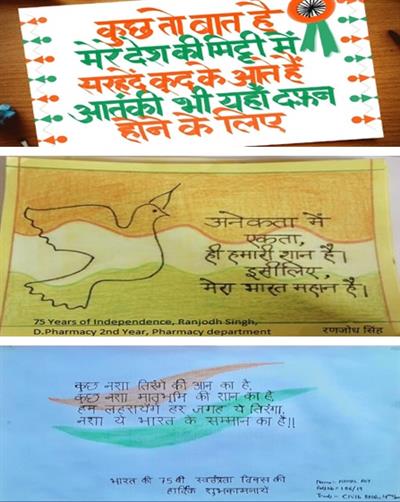 कुछ तो बात है
मेरे देश की मिट्टी में
सरहदें कूद के आते हैं
आतंकी भी यहाँ दफ़न
होने के लिए
अनेकता में
एकता,
ही हमारी शान है।
इसीलिए,
मेरा भारत महान है।
75 Years of Independence, Ranjodh Singh,
D.Pharmacy 2nd Year, Pharmacy department
रणजोध सिंह
कुछ नशा तिरंगे की आन का है,
कुछ नशा मातृभूमि की शान का है
हम लहरायेंगे हर जगह ये तिरंगा,
नशा ये भारत के सम्मान का है!!
भारत की 75 वी स्वतंत्रता दिवस की
हार्दिक शुभकामनायें